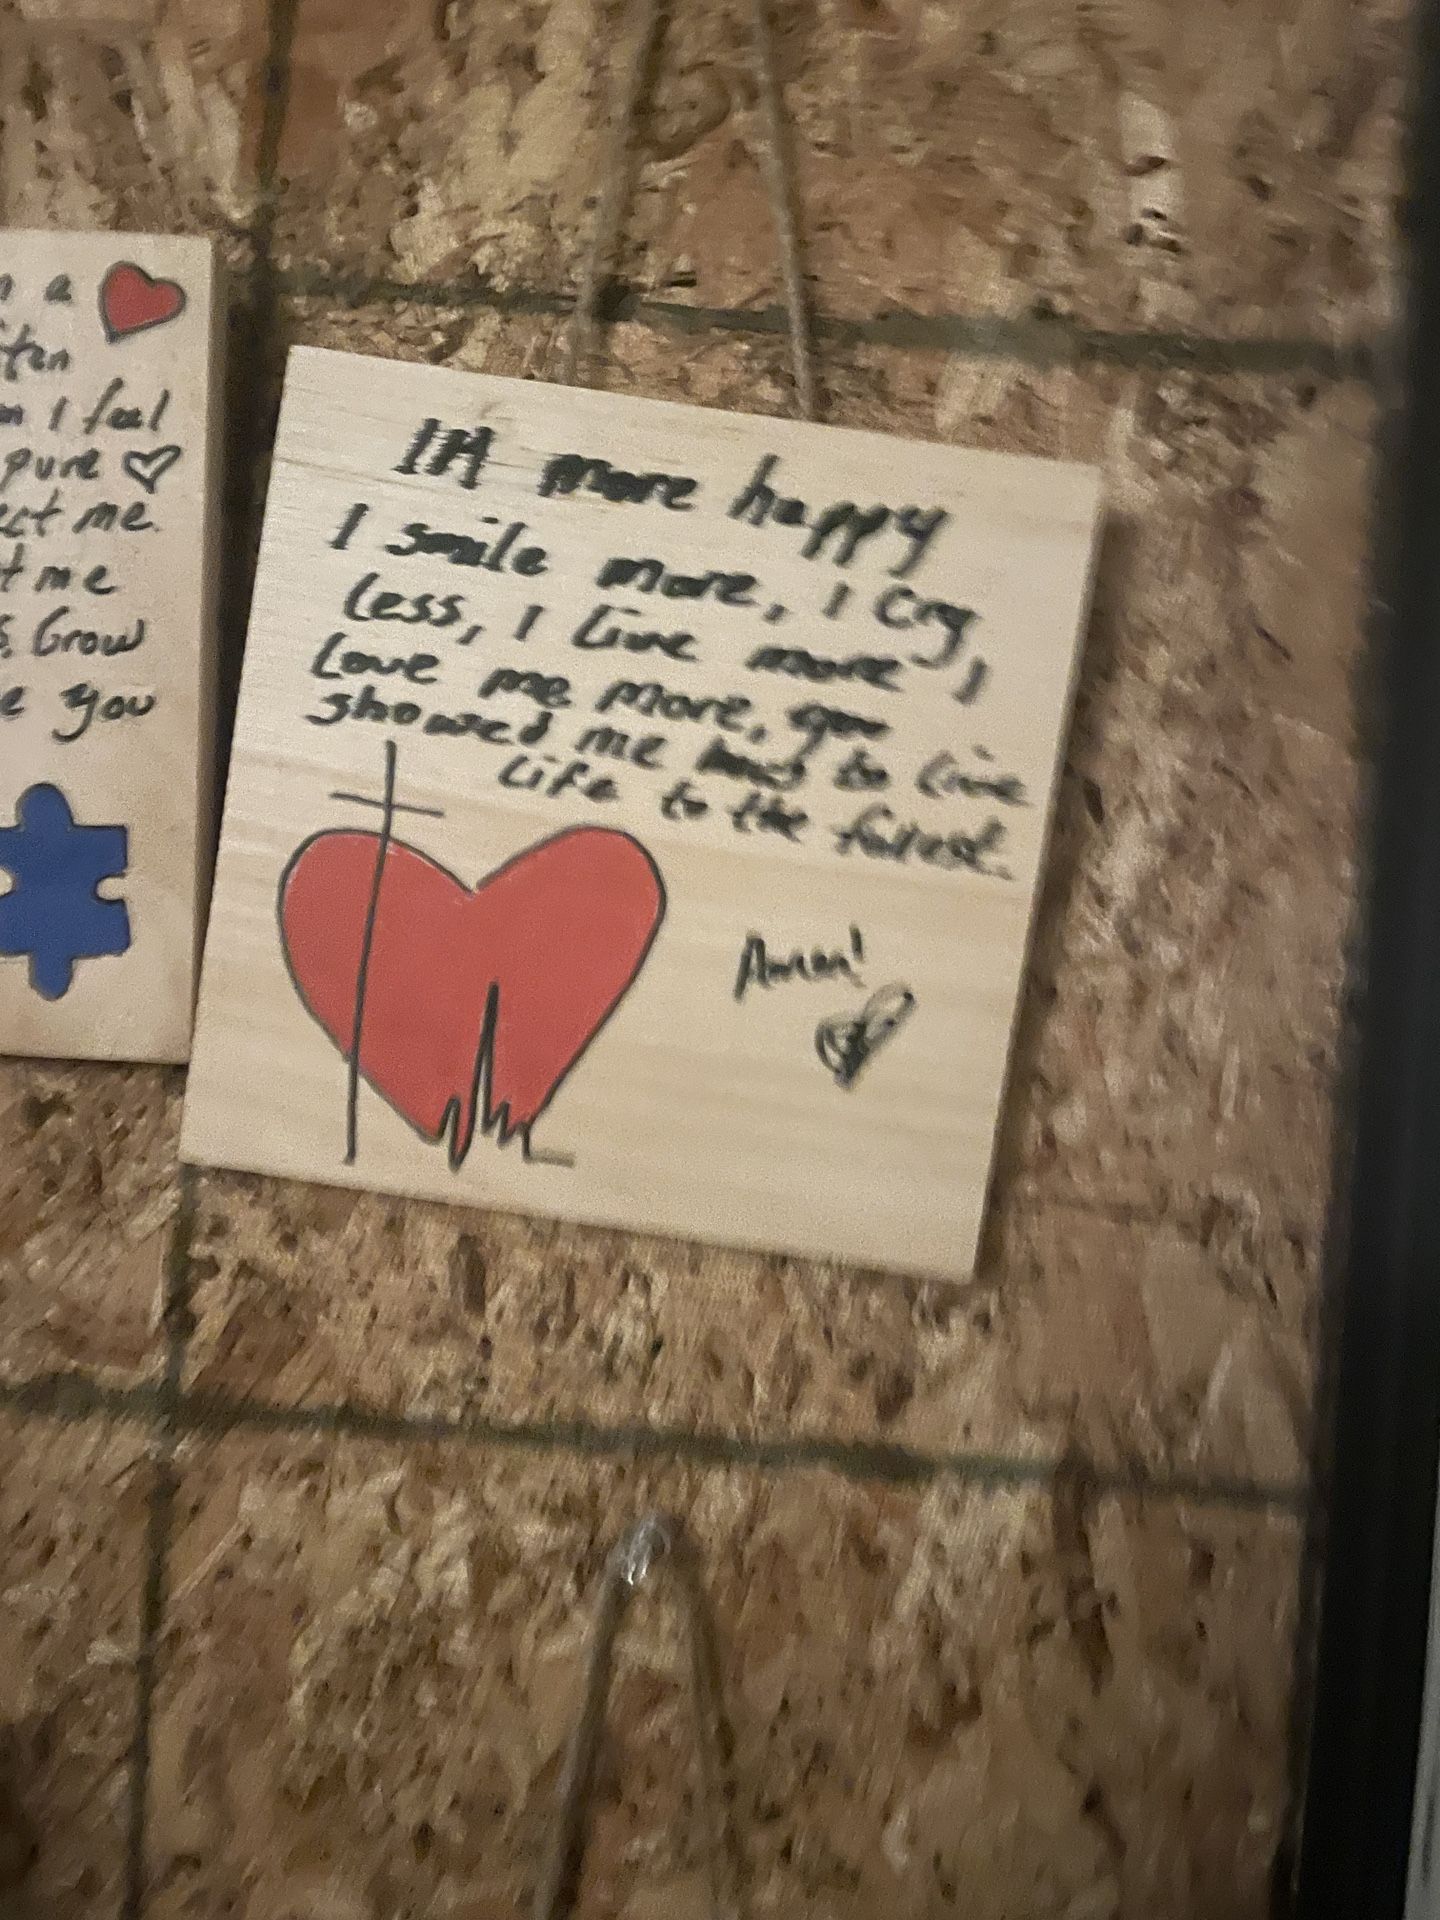 a
I feel
pure
me.
me
Grow
you
IM more happy
I smile more, I cry,
Less, I live more, I
Love me more, you
showed me how to live
Life to the fullest.
Amen!